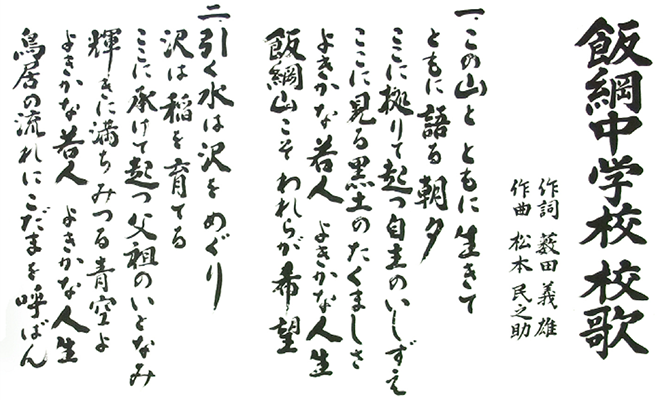 飯綱中学校 校歌
作詞 薮田義雄
作曲 松本民之助
一、この山と ともに生きて
ともに語る 朝夕
ここに拠りて起つ自主のいしずえ
ここに見る黒土のたくましさ
よきかな若人 よきかな人生
飯綱山こそわれらが希望
二、引く水は沢をめぐり
沢は稲を育てる
ここに承けて起つ父祖のいとなみ
輝きに満ちみつる青空よ
よきかな若人 よきかな人生
鳥居の流れにこだまを呼ばん